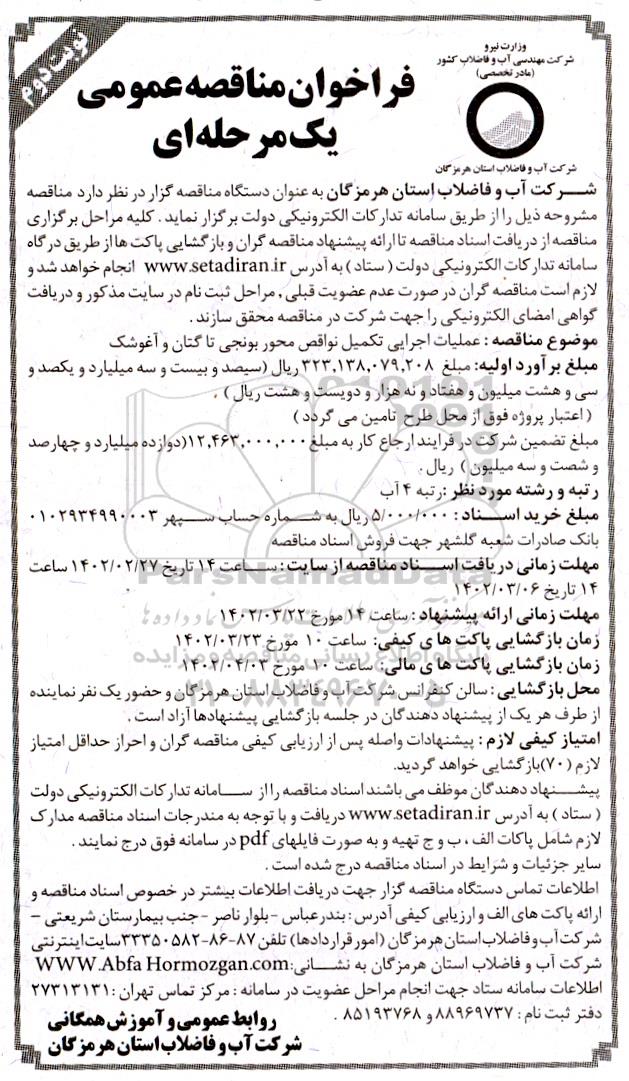 نوبت دوم
وزارت نیرو
شرکت مهندسی آب و فاضلاب کشور
(مادر تخصصی)
شرکت آب و فاضلاب استان هرمزگان
فراخوان مناقصه عمومی
یک مرحله‌ای
شرکت آب و فاضلاب استان هرمزگان به عنوان دستگاه مناقصه گزار در نظر دارد مناقصه
مشروحه ذیل را از طریق سامانه تدارکات الکترونیکی دولت برگزار نماید . کلیه مراحل برگزاری
مناقصه از دریافت اسناد مناقصه تا ارائه پیشنهاد مناقصه گران و بازگشایی پاکت ها از طریق درگاه
سامانه تدارکات الکترونیکی دولت ( ستاد ) به آدرس www.setadiran.ir انجام خواهد شد و
لازم است مناقصه گران در صورت عدم عضویت قبلی ، مراحل ثبت نام در سایت مذکور و دریافت
گواهی امضای الکترونیکی را جهت شرکت در مناقصه محقق سازند .
موضوع مناقصه : عملیات اجرایی تکمیل نواقص محور بونجی تا گتان و آغوشک
مبلغ برآورد اولیه: مبلغ ۳۲۳,۱۳۸,۰۷۹,۲۰۸ ریال (سیصد و بیست و سه میلیارد و یکصد و
سی و هشت میلیون و هفتاد و نه هزار و دویست و هشت ریال ) .
( اعتبار پروژه فوق از محل طرح تامین می گردد )
مبلغ تضمین شرکت در فرایند ارجاع کار به مبلغ ۱۲,۴۶۳,۰۰۰,۰۰۰(دوازده میلیارد و چهارصد
و شصت و سه میلیون ) ریال .
رتبه و رشته مورد نظر :رتبه ۴ آب
مبلغ خرید اسناد : ۵/۰۰۰/۰۰۰ ریال به شماره حساب سپهر ۰۱۰۲۹۳۴۹۹۰۰۰۳
بانک صادرات شعبه گلشهر جهت فروش اسناد مناقصه
مهلت زمانی دریافت اسناد مناقصه از سایت : ساعت ۱۴ تاریخ ۱۴۰۲/۰۲/۲۷ ساعت
۱۴ تاریخ ۱۴۰۲/۰۳/۰۶
مهلت زمانی ارائه پیشنهاد : ساعت ۱۴ مورخ ۱۴۰۲/۰۳/۲۲
زمان بازگشایی پاکت های کیفی: ساعت ۱۰ مورخ ۱۴۰۲/۰۳/۲۳
زمان بازگشایی پاکت های مالی: ساعت ۱۰ مورخ ۱۴۰۲/۰۴/۰۳
محل بازگشایی : سالن کنفرانس شرکت آب و فاضلاب استان هرمزگان و حضور یک نفر نماینده
از طرف هر یک از پیشنهاد دهندگان در جلسه بازگشایی پیشنهادها آزاد است .
امتیاز کیفی لازم : پیشنهادات واصله پس از ارزیابی کیفی مناقصه گران و احراز حداقل امتیاز
لازم (۷۰)بازگشایی خواهد گردید.
پیشنهاد دهندگان موظف می باشند اسناد مناقصه را از سامانه تدارکات الکترونیکی دولت
( ستاد ) به آدرس www.setadiran.ir دریافت و با توجه به مندرجات اسناد مناقصه مدارک
لازم شامل پاکات الف ، ب و ج تهیه و به صورت فایلهای pdf در سامانه فوق درج نمایند .
سایر جزئیات و شرایط در اسناد مناقصه درج شده است .
اطلاعات تماس دستگاه مناقصه گزار جهت دریافت اطلاعات بیشتر در خصوص اسناد مناقصه و
ارائه پاکت های الف و ارزیابی کیفی آدرس : بندرعباس - بلوار ناصر - جنب بیمارستان شریعتی –
شرکت آب و فاضلاب استان هرمزگان (امور قراردادها) تلفن ۸۷-۸۶-۳۳۳۵۰۵۸۲سایت اینترنتی
شرکت آب و فاضلاب استان هرمزگان به نشانی:WWW.Abfa Hormozgan.com
اطلاعات سامانه ستاد جهت انجام مراحل عضویت در سامانه : مرکز تماس تهران :۲۷۳۱۳۱۳۱
دفتر ثبت نام : ۸۸۹۶۹۷۳۷ و ۸۵۱۹۳۷۶۸ .
روابط عمومی و آموزش همگانی
شرکت آب و فاضلاب استان هرمزگان
ParsNamadData